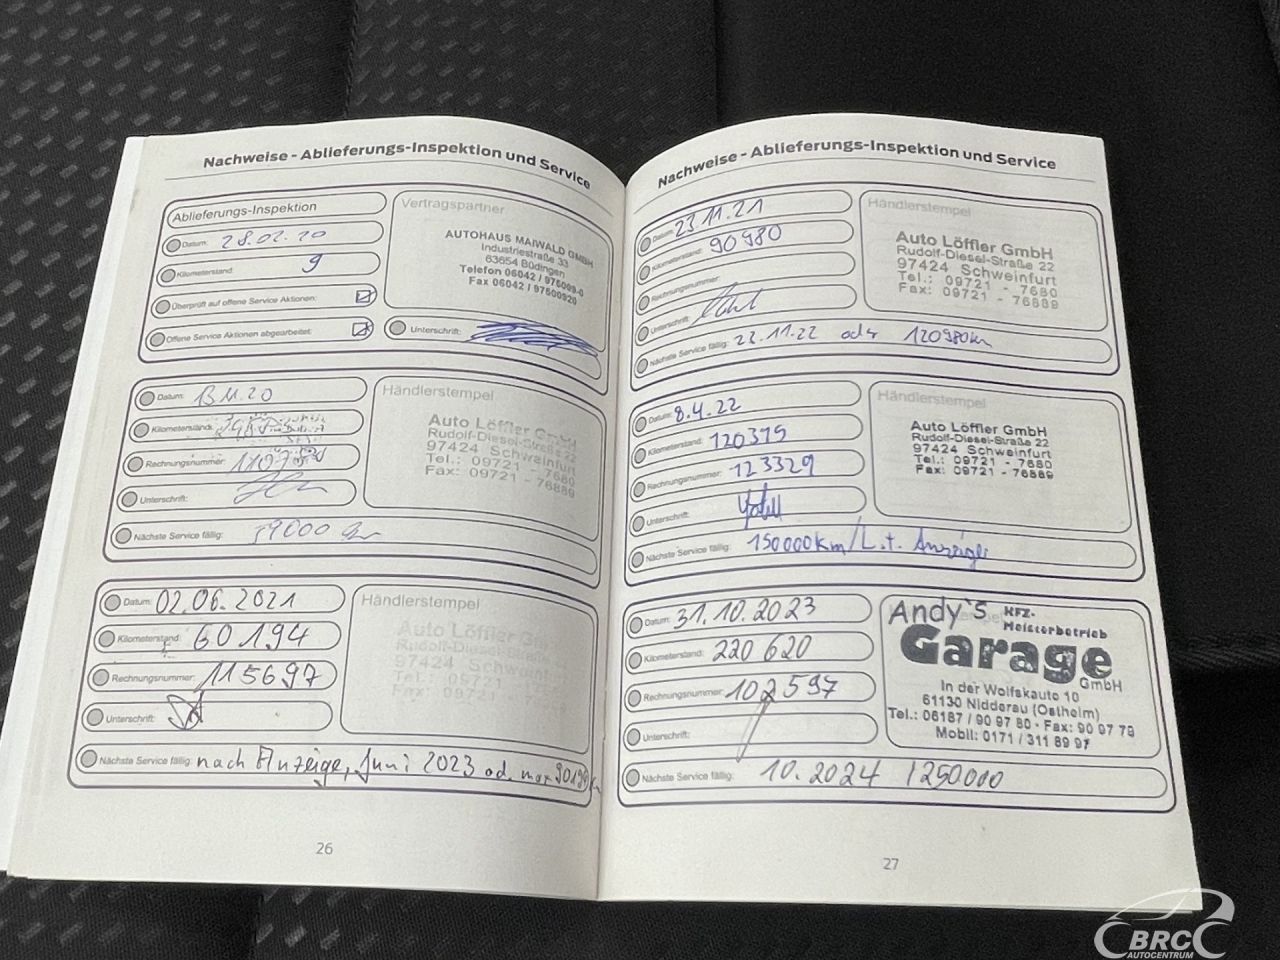 Nachweise - Ablieferungs-Inspektion und Service
Ablieferungs-Inspektion
Datum: 28.02.20
Kilometerstand: 9
Überprüft auf offene Service Aktionen:
Offene Service Aktionen abgearbeitet:
Vertragspartner
AUTOHAUS MAIWALD GMBH
Industriestraße 33
63654 Büdingen
Telefon 06042 / 976099-0
Fax 06042 / 97600920
Unterschrift:
Datum: 13.11.20
Kilometerstand:
Rechnungsnummer:
Unterschrift:
Nächste Service fällig: 59000 km
Händlerstempel
Auto Löffler GmbH
Rudolf-Diesel-Straße 22
97424 Schweinfurt
Tel.: 09721 - 7680
Fax: 09721 - 76889
Datum: 02.06.2021
Kilometerstand: 60194
Rechnungsnummer: 115697
Unterschrift:
Nächste Service fällig: nach Anzeige, Juni 2023 od. max 90194 km
Händlerstempel
Auto Löffler GmbH
Rudolf-Diesel-Straße 22
97424 Schweinfurt
Tel.: 09721 - 7680
Fax: 09721 - 76889
26
Nachweise - Ablieferungs-Inspektion und Service
Datum: 23.11.21
Kilometerstand: 90980
Rechnungsnummer:
Unterschrift:
Nächste Service fällig: 22.11.22 oder 120980km
Händlerstempel
Auto Löffler GmbH
Rudolf-Diesel-Straße 22
97424 Schweinfurt
Tel.: 09721 - 7680
Fax: 09721 - 76889
Datum: 8.4.22
Kilometerstand: 120319
Rechnungsnummer: 123329
Unterschrift:
Nächste Service fällig: 150000km/L.t. Anzeige
Händlerstempel
Auto Löffler GmbH
Rudolf-Diesel-Straße 22
97424 Schweinfurt
Tel.: 09721 - 7680
Fax: 09721 - 76889
Datum: 31.10.2023
Kilometerstand: 220 620
Rechnungsnummer: 102597
Unterschrift:
Nächste Service fällig: 10.2024 1250000
Andy's KFZ-
Meisterbetrieb
Garage
GmbH
In der Wolfskaute 10
61130 Nidderau (Ostheim)
Tel.: 06187 / 90 97 80 · Fax: 90 97 79
Mobil: 0171 / 311 89 97
27
BRC
AUTOCENTRUM